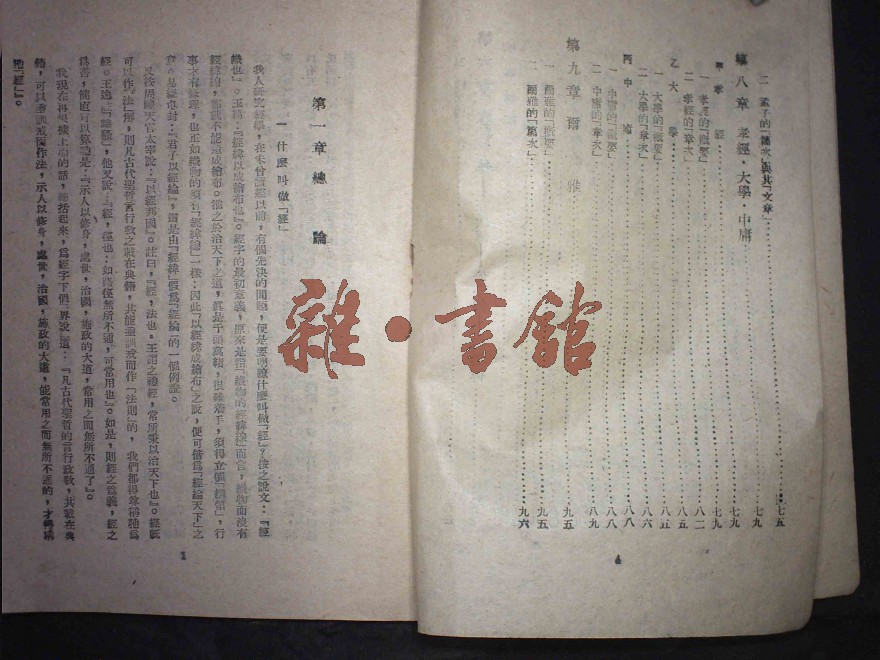 二 孟子的「篇次」與其「文章」 七五
第八章 孝經・大學・中庸 七九
甲 孝經 七九
一 孝經的「概要」 七九
二 孝經的「章次」 八二
乙 大學 八五
一 大學的「概要」 八五
二 大學的「章次」 八六
丙 中庸 八八
一 中庸的「概要」 八八
二 中庸的「章次」 八九
第九章 爾雅 九五
一 爾雅的「概要」 九五
二 爾雅的「篇次」 九六
4
第一章 總論
一 什麼叫做「經」
我人研究經學，在未曾讀經以前，有個先決的問題，便是要明瞭什麼叫做『經』？按之說文：『經
織也』。王謂：『經緯以成繒布也』。經字的最初意義，原來是指「織物的經緯線」而言，織物而沒有
經緯線，當就不能造成繒布。推之於治天下之道，真是千頭萬緒，很難着手，須得立個「經領」，行
事才有條理，也正如織物的須「經緯線」一樣：因此「以經緯成繒布」之說，便可借爲「經論天下」之
意。易經屯卦：『君子以經論』，這是由「經緯」假爲「經論」的一個例證。
又按周禮天官太宰說：『以經邦國』。註曰，『經，法也。王謂之禮經，常所秉以治天下也』。經既
可以作「法」解，則凡古代聖哲言行政之載在典籍，其能垂訓戒而作「法則」的，我們都得尊稱牠爲
經。王逸註「離騷」，他又說：『經，徑也：如路徑無所不通，可常用也』。如是，則經之爲義，經之
爲書，簡直可以算牠是：『示人以修身，處世，治國，施政的大道，常用之而無所不通了』。
我現在再根據上面的話，總括起來，爲經字下個界說道：『凡古代聖哲的言行政敎，其載在典
籍，可以垂訓戒而作法，示人以修身，處世，治國，施政的大道，能常用之而無所不通的，才得稱
牠「經」』。
1
雜・書館